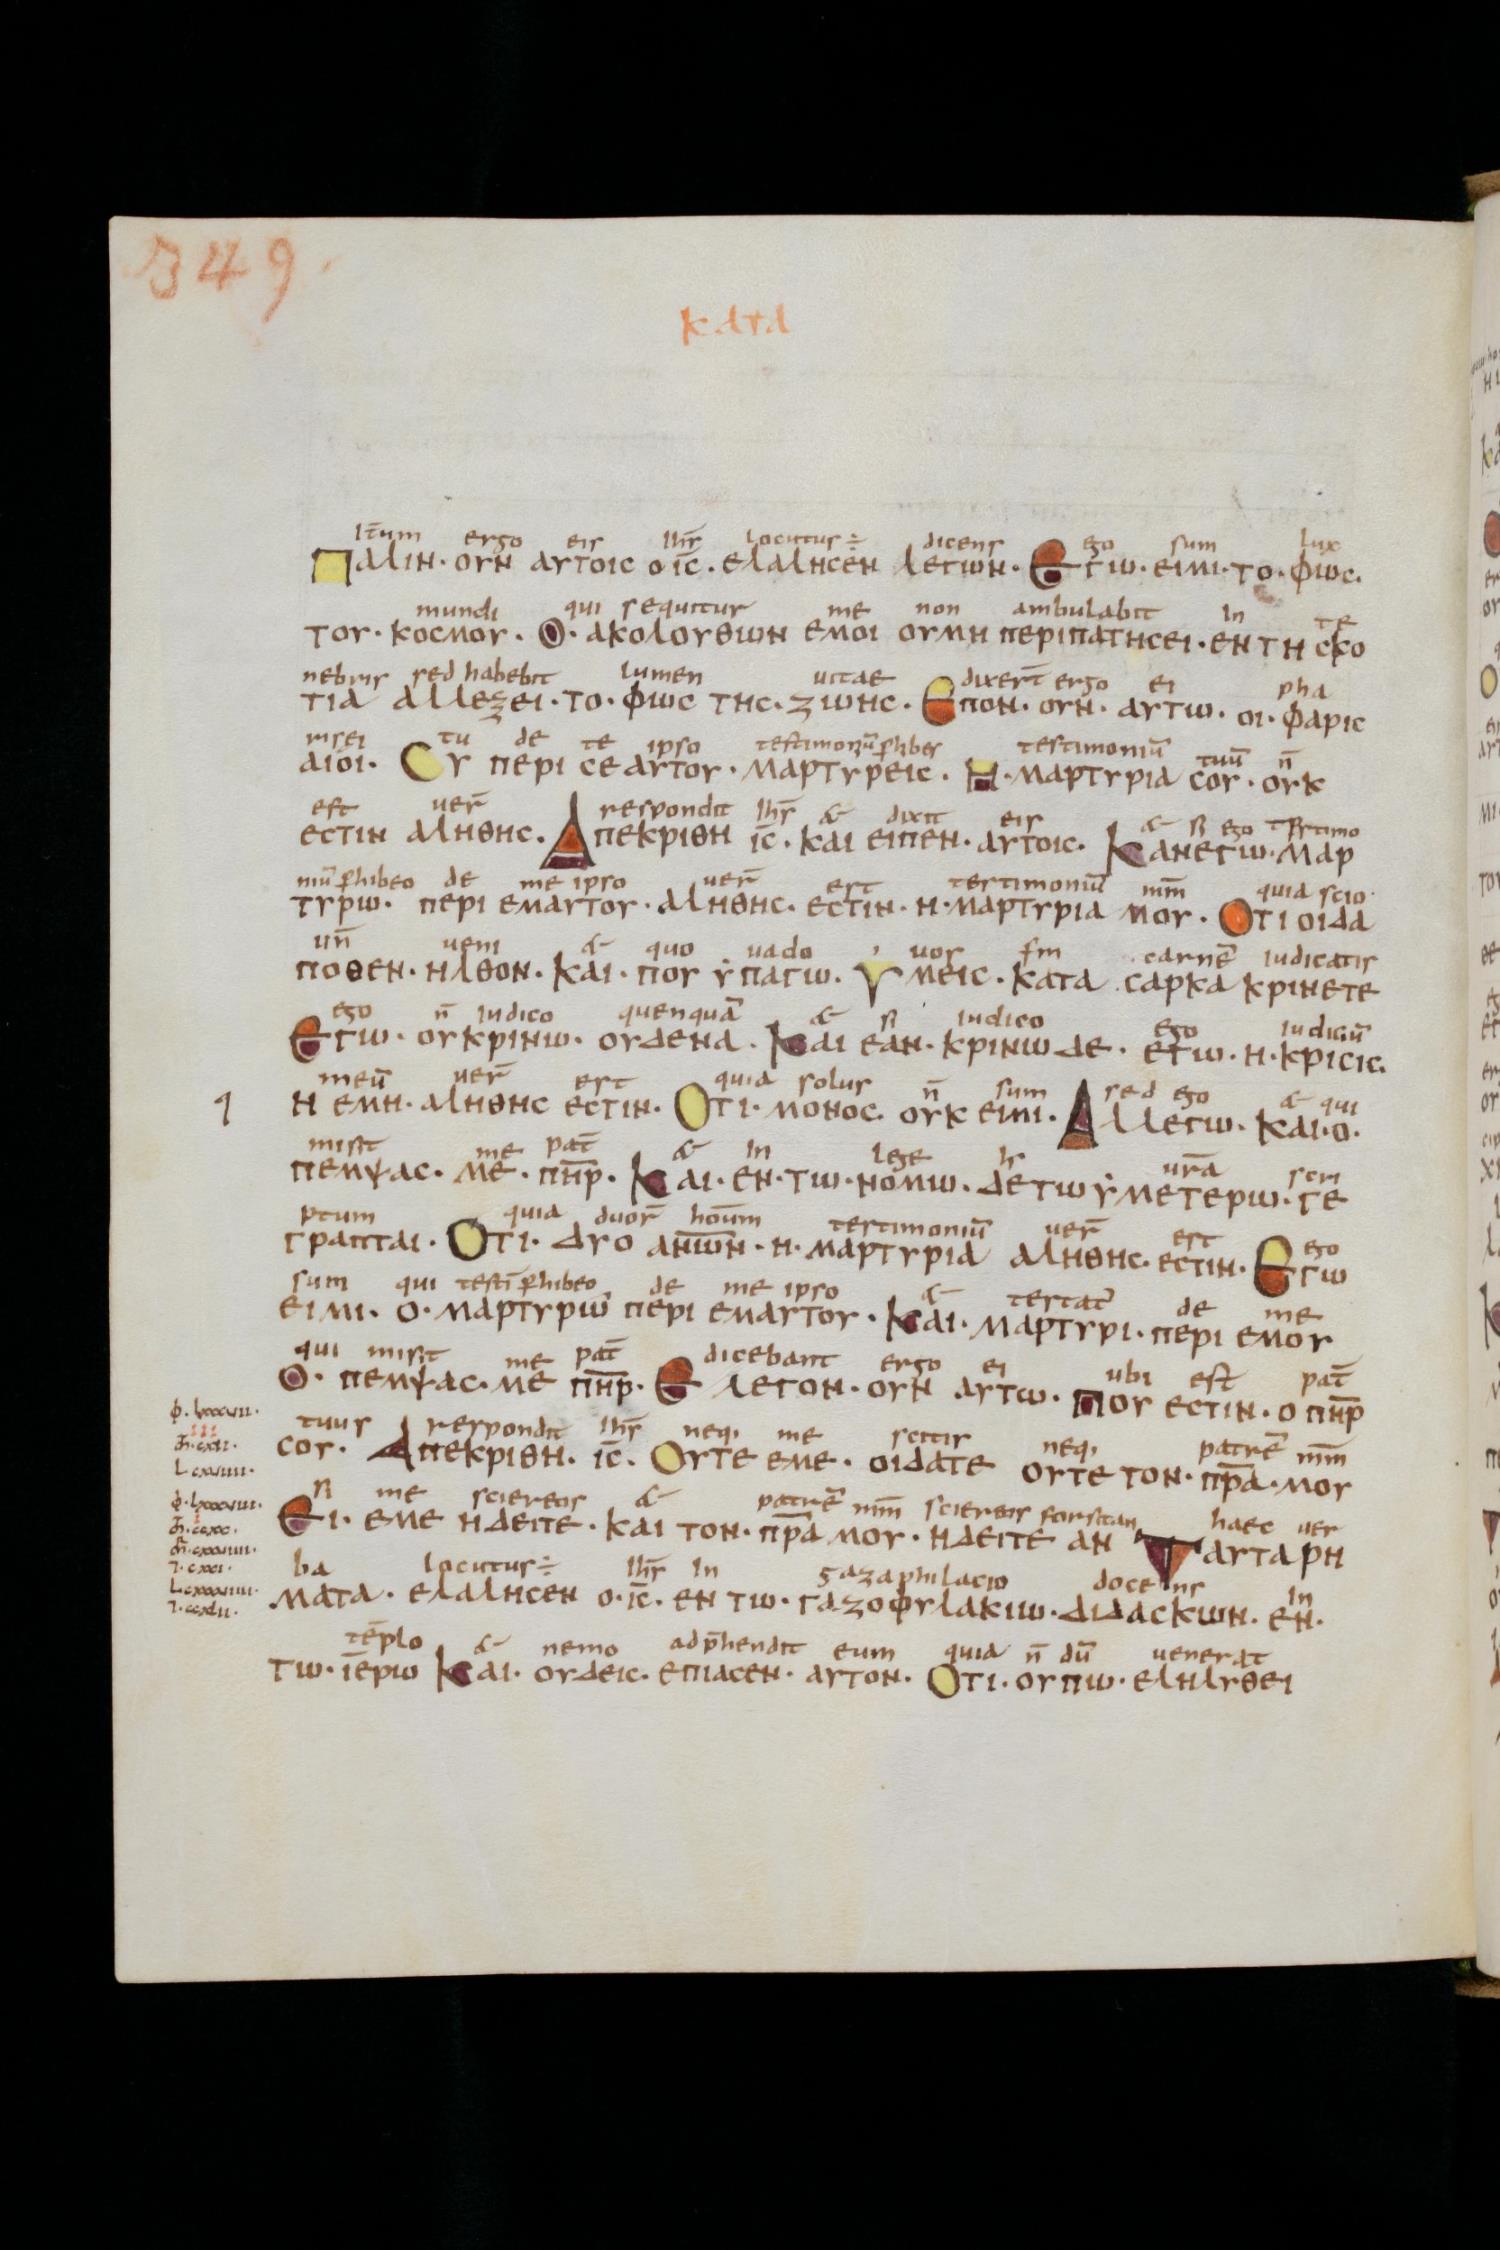 349.
κατα
It̄um ergo eis Ihs̄ locutus ÷ dicens ego sum lux
Παλιν· ουν αυτοις ο ιc̄. ελαλησεν λεγων. Εγω. ειμι· το· φως.
mundi qui sequitur me non ambulabit in te
του· κοσμου. Ο· ακολουθων εμοι ουμη περιπατησει· εν τη σκο
nebris sed habebit lumen uitae dixer̄t ergo ei pha
τια αλλεξει· το· φως της· ζωης. Επον· ουν· αυτω. οι· φαρις
risei tu de te ipso testimoniū p̄hibes testimoniū tuū n̄
αιοι. Συ περι σεαυτου· μαρτυρεις. Η· μαρτυρια σου· ουκ
est uer̄ respondit Ihs̄ & dixit eis & si ego testimo
εστιν αληθης. Απεκριθη ιc̄. και ειπεν. αυτοις. Κανεγω· μαρ
niū p̄hibeo de me ipso uer̄ est testimoniū mm̄ quia scio
τυρω· περι εμαυτου· αληθης· εστιν· η· μαρτυρια μου. Οτι οιδα
un̄ ueni & quo uado uos sm carnē iudicatis
ποθεν· ηλθον· και· που υπαγω. Υμεις. κατα σαρκα κρινετε
ego n̄ iudico quenquā & si iudico ego iudiciū
Εγω· ουκρινω· ουδενα. Και εαν· κρινω δε· εγω· η· κρισις.
meū uer̄ est quia solus n̄ sum sed ego & qui
Η εμη· αληθης εστιν. Οτι· μονος. ουκ ειμι. Αλλεγω. και· ο.
misit me pat̄ & in lege ur̄a scri
πεμψας. με· πη̄ρ. Και· εν· τω· νομω. δε τω υμετερω· γε
ptum quia duor̄ hoūm testimoniū uer̄ est ego
γραπται. Οτι· δυο ανω̄ν· η· μαρτυρια αληθης· εστιν. Εγω
sum qui testī p̄hibeo de me ipso & testat̄ de me
ειμι. ο· μαρτυρων περι εμαυτου. Και· μαρτυρι· περι εμου
qui misit me pat̄ dicebant ergo ei ubi est pat̄
Ο· πεμψας· με πη̄ρ. Ελεγον· ουν αυτω. που εστιν. ο πη̄ρ
tuus respondit Ihs̄ neq, me scitis neq, patrē mm̄
σου. Απεκριθη. ιc̄. Ουτε εμε. οιδατε ουτε τον· πρ̄α· μου
si me sciretis & patrē mm̄ sciretis forsitan haec uer
Ει. εμε ηδειτε. και τον· πρ̄α μου. ηδειτε αν Ταυτα ρη
ba locutus ÷ Ihs̄ in gazaphilacio docens in
ματα. ελαλησεν ο· ιc̄. εν τω. γαζοφυλακιω· διδασκων. εν.
tēplo & nemo adp̄hendit eum quia n̄ dū uenerat
τω. ιερω Και. ουδεις. επιασεν· αυτον. Οτι· ουπω· εληλυθει